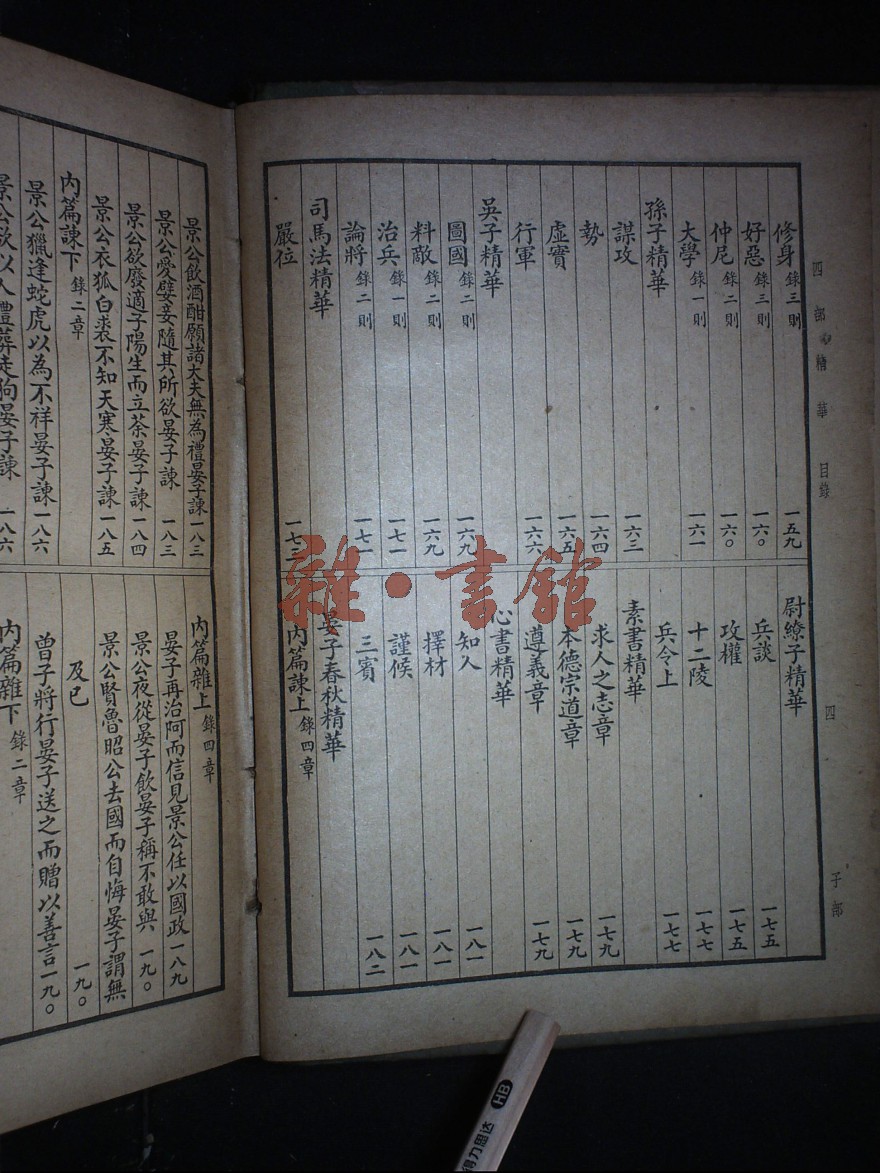 四部精華 目錄 四 子部
修身 錄三則 一五九
好惡 錄三則 一六〇
仲尼 錄二則 一六〇
大學 錄一則 一六一
孫子精華
謀攻 一六三
勢 一六四
虛實 一六五
行軍 一六六
吳子精華
圖國 錄二則 一六九
料敵 錄二則 一六九
治兵 錄一則 一七一
論將 錄二則 一七一
司馬法精華
嚴位 一七三
尉繚子精華
兵談 一七五
攻權 一七五
十二陵 一七七
兵令上 一七七
素書精華
求人之志章 一七九
本德宗道章 一七九
遵義章 一七九
心書精華
知人 一八一
擇材 一八一
謹候 一八一
三賓 一八二
晏子春秋精華
內篇諫上 錄四章
景公飲酒酣願諸大夫無為禮晏子諫 一八三
景公愛嬖妾隨其所欲晏子諫 一八三
景公欲廢適子陽生而立荼晏子諫 一八四
景公衣狐白裘不知天寒晏子諫 一八五
內篇諫下 錄二章
景公獵逢蛇虎以為不祥晏子諫 一八六
景公欲以人禮葬走狗晏子諫 一八六
內篇雜上 錄四章
晏子再治阿而信見景公任以國政 一八九
景公夜從晏子飲晏子稱不敢與 一九〇
景公賢魯昭公去國而自悔晏子謂無
及已 一九〇
曾子將行晏子送之而贈以善言 一九〇
內篇雜下 錄二章
雜·書館
得力思达 HB